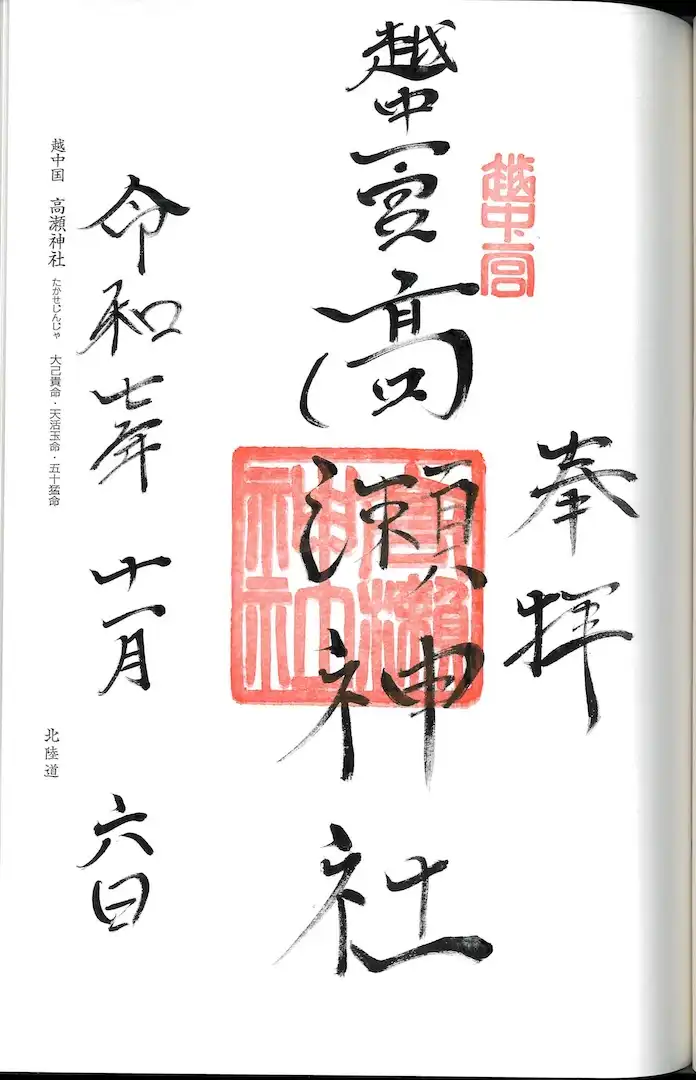 奉拝
越中一宮
越中一宮
高瀬神社
高瀬神社
令和七年 十一月 六日
越中国 高瀬神社 たかせじんじゃ 大己貴命・天活玉命・五十猛命
北陸道